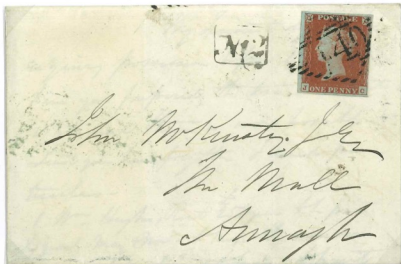 No 2
POSTAGE
ONE PENNY
John McKinsty Jr
The Mall
Armagh